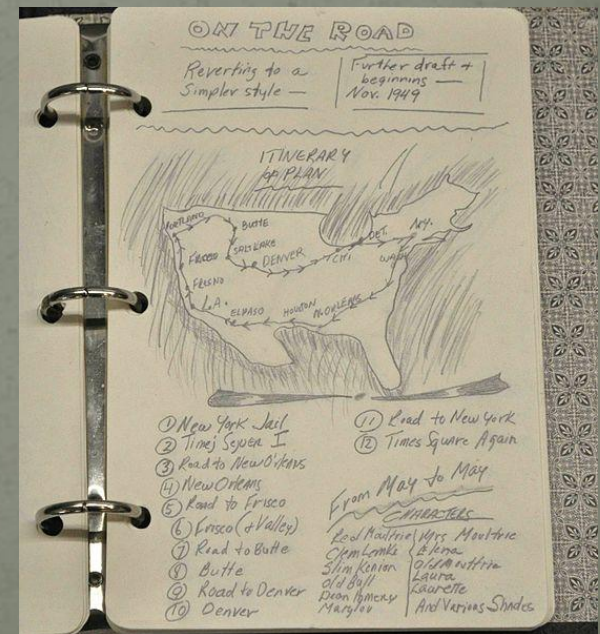 ON THE ROAD
Reverting to a
Simpler style —
Further draft +
beginning —
Nov. 1949
ITINERARY
OF PLAN
PORTLAND
BUTTE
N.Y.
DET.
FRISCO
SALT LAKE
DENVER
CHI
WA
FRESNO
L.A.
EL PASO
HOUSTON
N. ORLEANS
① New York Jail
② Times Square I
③ Road to New Orleans
④ New Orleans
⑤ Road to Frisco
⑥ Frisco (+ Valley)
⑦ Road to Butte
⑧ Butte
⑨ Road to Denver
⑩ Denver
⑪ Road to New York
⑫ Times Square Again
From May to May
CHARACTERS
Red Moultrie
Clem Lemke
Slim Kenion
Old Bull
Dean Pomeray
Marylou
Mrs Moultrie
Elena
Old Moultrie
Laura
Laurette
And Various Shades